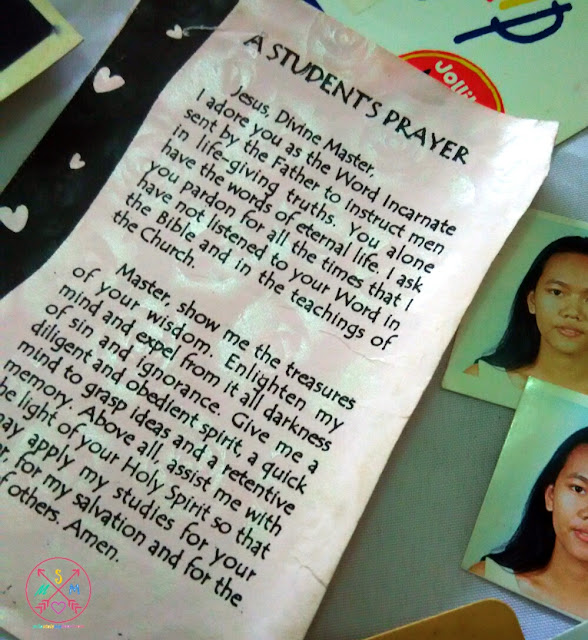 A STUDENT'S PRAYER
Jesus, Divine Master,
I adore you as the Word Incarnate
sent by the Father to instruct men
in life-giving truths. You alone
have the words of eternal life. I ask
you pardon for all the times that I
have not listened to your Word in
the Bible and in the teachings of
the Church.
Master, show me the treasures
of your wisdom. Enlighten my
mind and expel from it all darkness
of sin and ignorance. Give me a
diligent and obedient spirit, a quick
mind to grasp ideas and a retentive
memory. Above all, assist me with
he light of your Holy Spirit so that
ay apply my studies for your
r, for my salvation and for the
f others. Amen.
Jolli
S
M